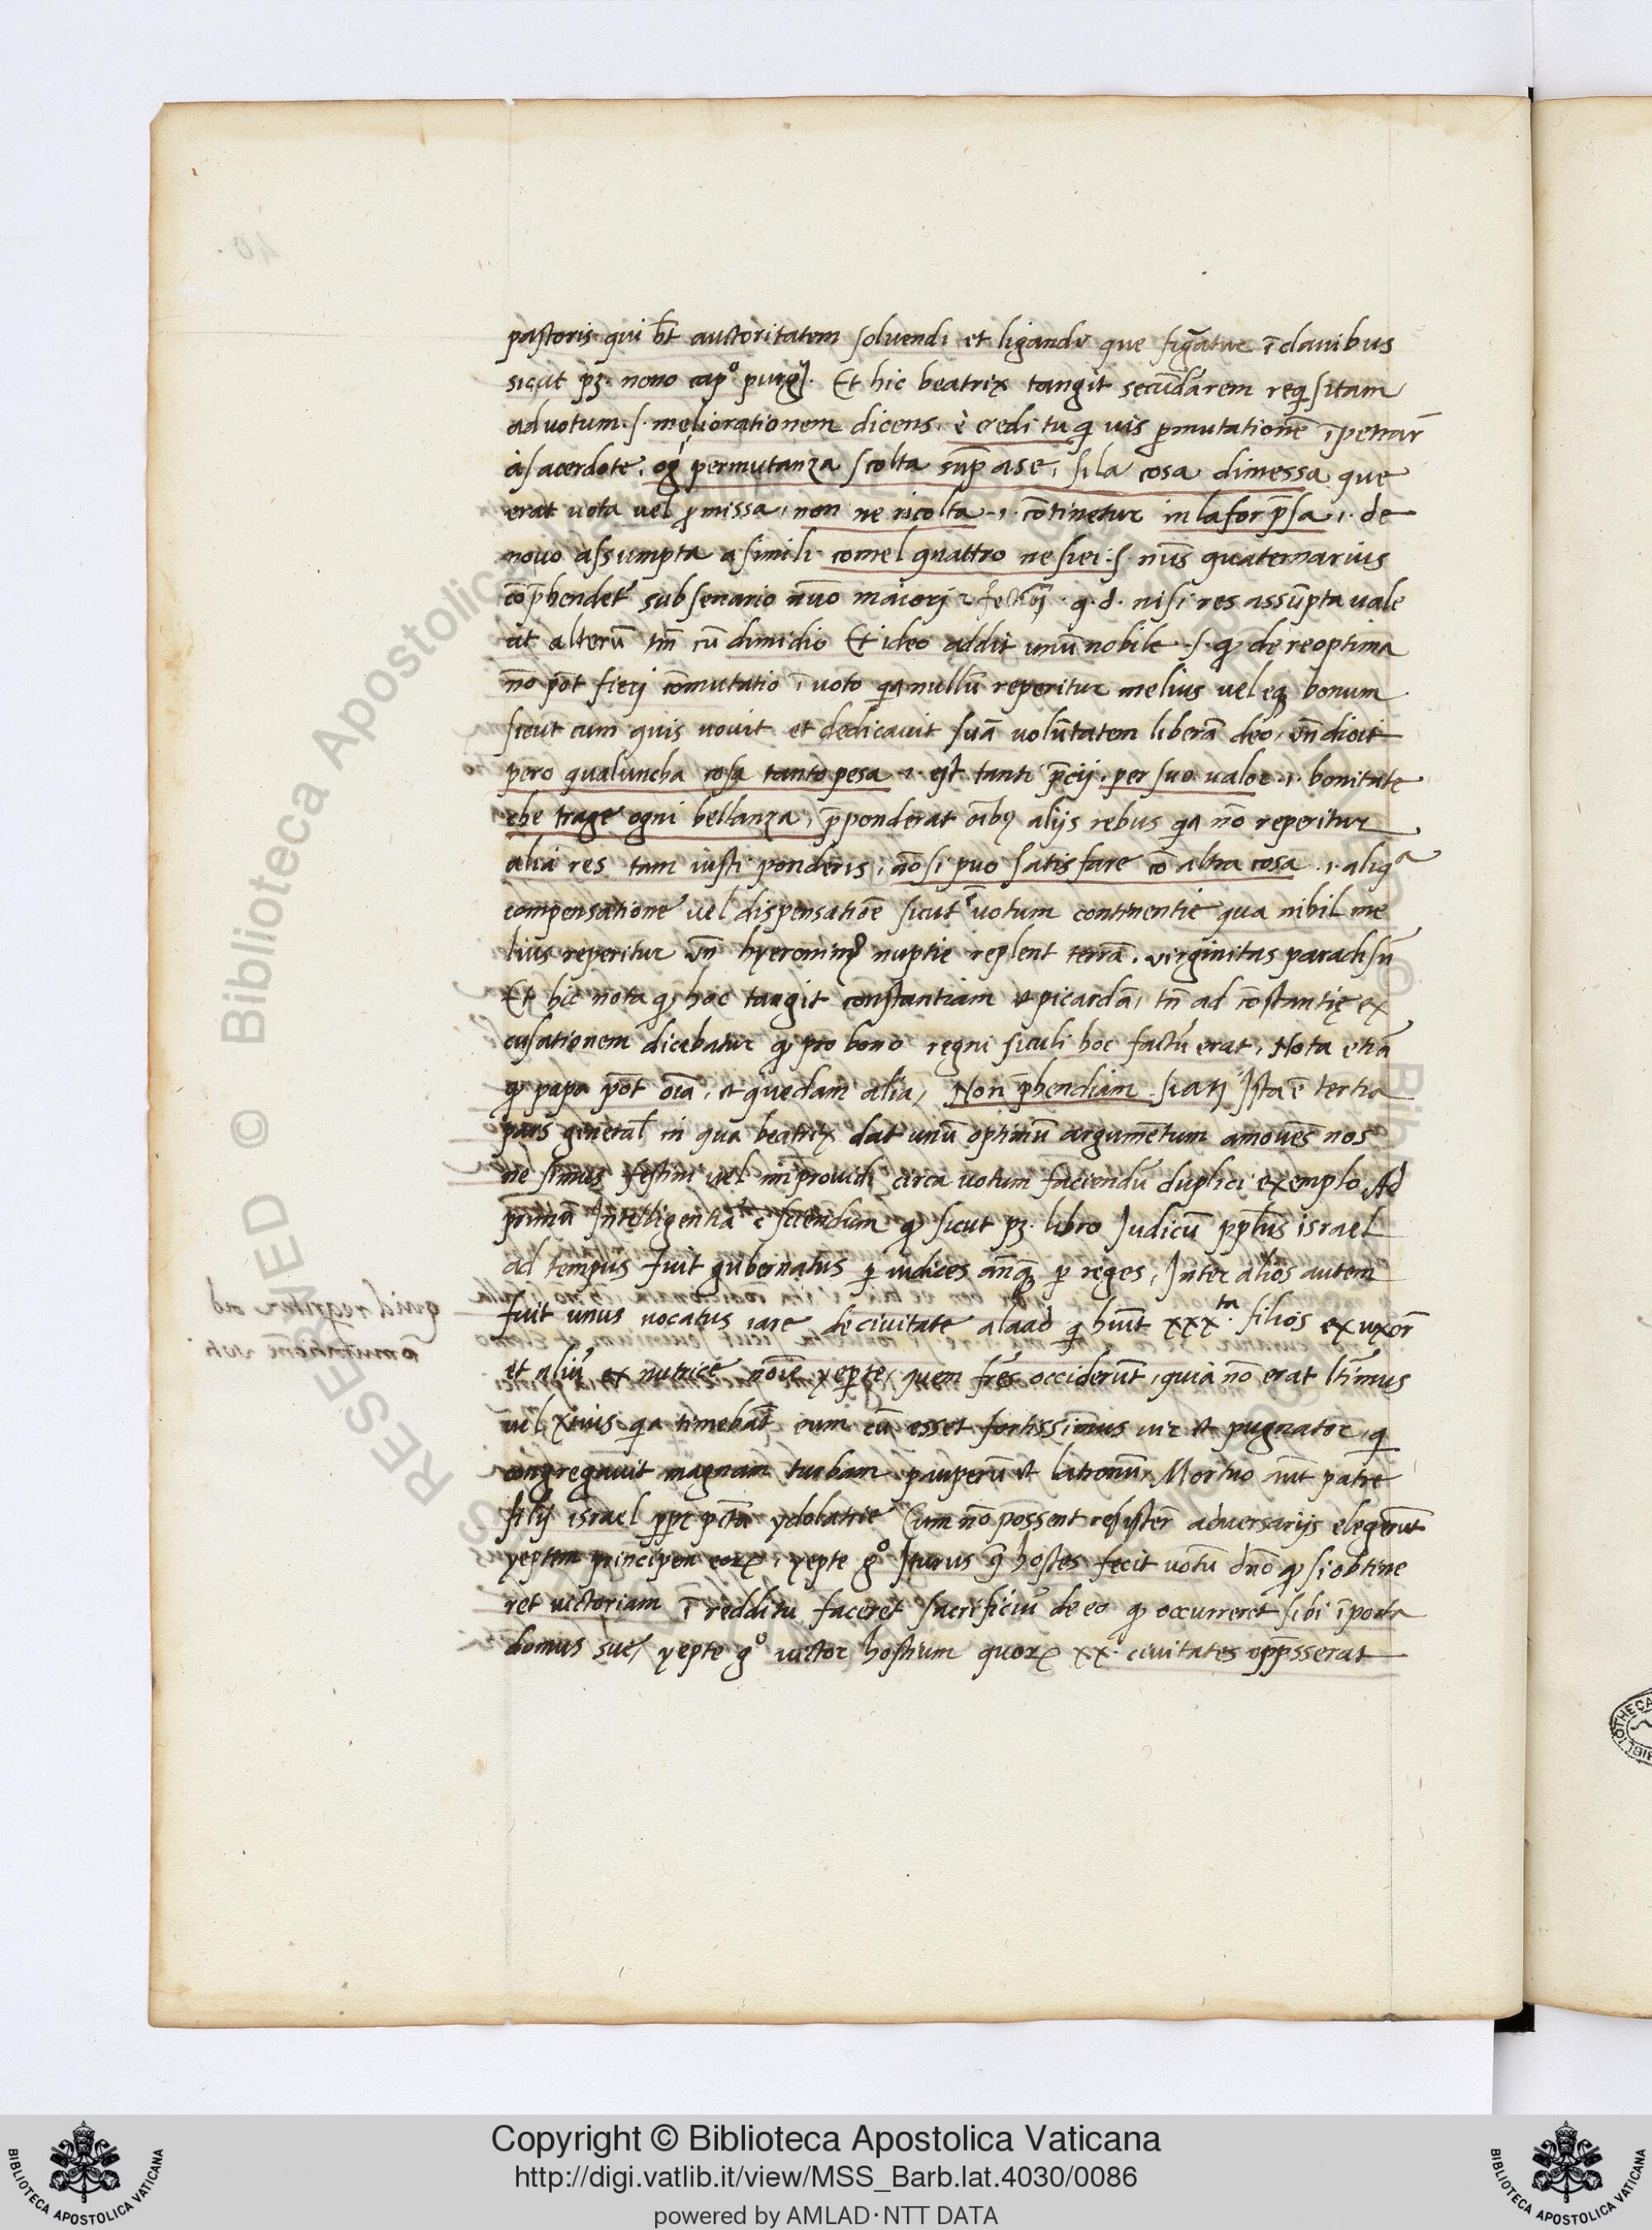 pastoris qui ht auctoritatem soluendi et ligandi que figat̄ur ī clauibus
sicut pȝ. nono capº purgȷ. Et hic beatrix tangit secūdā rem req̇sitam
ad uotum .s. meliorationem dicens. è credi tu q̇ uis ꝑmutationē īpetrar̄
à sacerdote. og permutanza scolta sup̄ ase, sila cosa dimessa que
erat uota uel ꝓmissa, non ne ricolta .i. cōtinetur in lasor p̄sa .i. de
nouo assumpta a simili comel quattro ne siei .s. nūs quaternarius
cōp̄hendet sub senario nūo maiorj .q.d. nisi res assūpta uale
at alterū tm̄ cū dimidio Et ideo addit unū nobile .s. ꝙ de re optima
nō pōt fierj cōmutatio ī uoto qa nullū reperitur melius uel eq bonum
sicut cum quis uouit et dedicauit suā volūtatem liberā deo, vn̄ dicit
pero qualuncha cosa tanto pesa .i. est tanti p̄cij. per suo ualor .i. bonitate
che trage ogni bellanza, p̄ponderat oībꝰ alijs rebus qa nō reperitur
alia res tam iusti ponderis, nō si puo satisfare cō altra cosa .i. aliqᵃ
compensatione uel dispensatiōe sicut ī uotum continentie qua nihil me
lius reperitur vn̄ hyeronimꝰ nuptie replent terrā. virginitas paradisū
Et hic nota ꝙ hoc tangit constantiam et picardā, tn̄ ad cōstantię ex
cusationem dicebatur ꝙ pro bono regni siculi hoc factū erat. Nota etiā
ꝙ papa pōt oīa. et quedam alia, Non p̄hendiam Ista ē tertia
pars general̄ in qua beatrix dat unū optimū argumētum amouēs nos
ne simus festini uel improuidi circa uotum faciendū duplici exemplo Ad
primū Intelligentiā ē sciendum ꝙ sicut pȝ. libro Judicū pp̄lus israel
ad tempus fuit gubernatus ꝑ iudices anq̄ȝ ꝑ reges, Inter alios autem
fuit unus uocatus iare de ciuitate alaad q̇ huit xxx.ta filios ex uxor̄
et aliū ex nutrice noīe yepte, quem fr̄es occiderūt, quia nō erat ltīmus
uel qa timebāt eum cū esset fortissimus uir et pugnator, q̇
congregauit magnam turbam pauperū et latronū. Mortuo aūt patre
filij israel pp̄t pctā ydolatrie Cum nō possent resistēr aduersarijs elegerūt
yeptem principem eoꝝ, yepte gº Iturus ꝯ̄ hostes fecit uotū dn̄o ꝙ si obtine
ret uictoriam ī redditu faceret sacrificiū de eo ꝙ occurreret sibi ī porta
domus sue, yepte gº uictor hostium quoꝝ xx. ciuitates opp̄sserat
RESERVED © Biblioteca Apostolica
Copyright © Biblioteca Apostolica Vaticana
http://digi.vatlib.it/view/MSS_Barb.lat.4030/0086
powered by AMLAD·NTT DATA
BIBLIOTECA APOSTOLICA VATICANA
BIBLIOTECA APOSTOLICA VATICANA